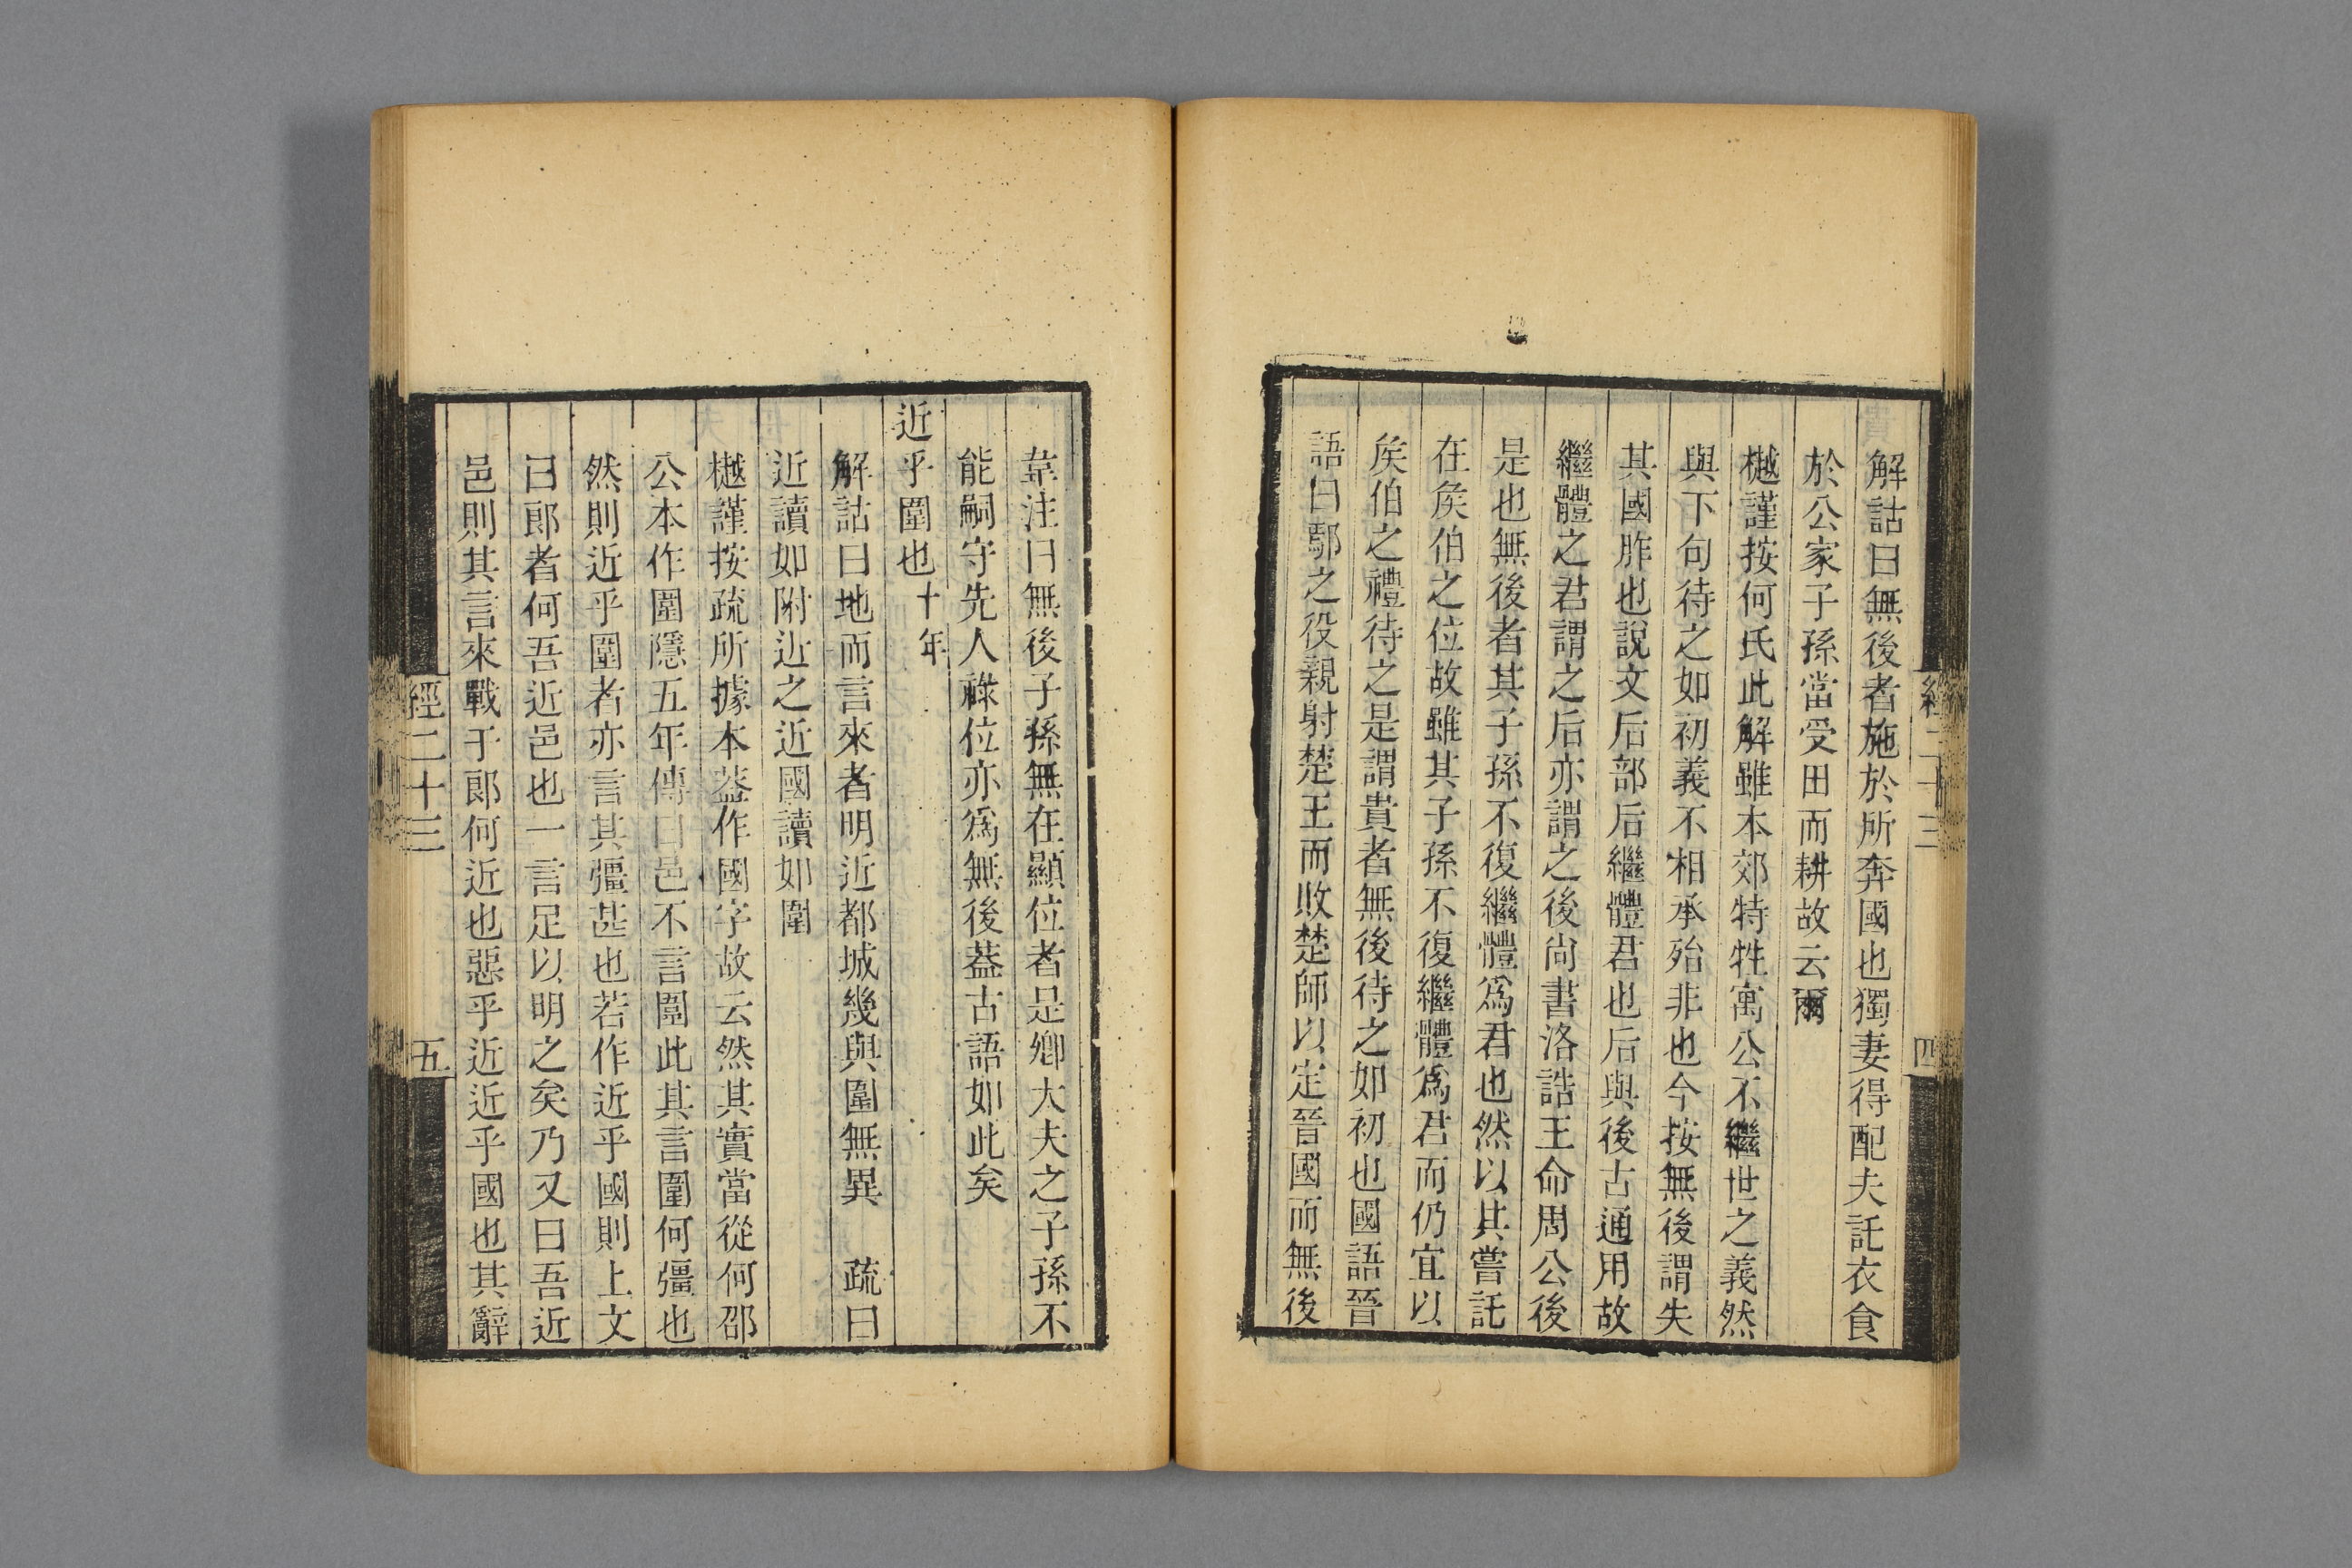 解詁曰無後者施於所奔國也獨妻得配夫託衣食
於公家子孫當受田而耕故云爾
樾謹按何氏此解雖本郊特牲寓公不繼世之義然
與下句待之如初義不相承殆非也今按無後謂失
其國胙也說文后部后繼體君也后與後古通用故
繼體之君謂之后亦謂之後尚書洛誥王命周公後
是也無後者其子孫不復繼體爲君也然以其嘗託
在矦伯之位故雖其子孫不復繼體爲君而仍宜以
矦伯之禮待之是謂貴者無後待之如初也國語晉
語曰鄢之役親射楚王而敗楚師以定晉國而無後
韋注曰無後子孫無在顯位者是卿大夫之子孫不
能嗣守先人祿位亦爲無後葢古語如此矣
近乎圍也十年
解詁曰地而言來者明近都城幾與圍無異 疏曰
近讀如附近之近國讀如圍
樾謹按疏所據本葢作國字故云然其實當從何邵
公本作圍隱五年傳曰邑不言圍此其言圍何彊也
然則近乎圍者亦言其彊甚也若作近乎國則上文
曰郎者何吾近邑也一言足以明之矣乃又曰吾近
邑則其言來戰于郎何近也惡乎近近乎國也其辭
經二十三
五